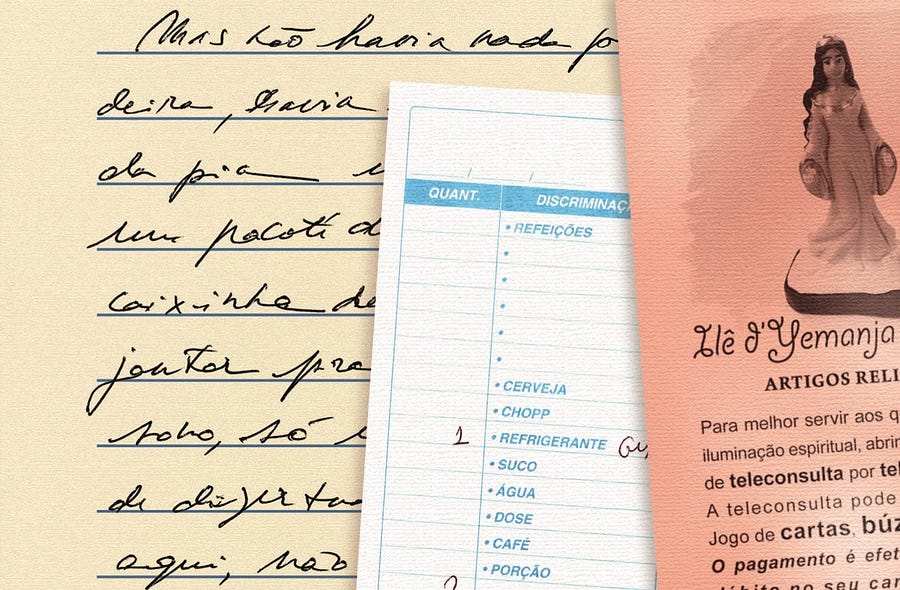 Mas não havia nada
deira, havia
da pia
um pacote d
caixinha de
jantar pra
só
de
aqui, não
/ /
QUANT. DISCRIMINAÇ
• REFEIÇÕES
•
•
•
•
•
• CERVEJA
• CHOPP
1 • REFRIGERANTE
• SUCO
• ÁGUA
• DOSE
• CAFÉ
• PORÇÃO
Ilê d'Yemanja
ARTIGOS RELI
Para melhor servir aos q
iluminação espiritual, abrir
de teleconsulta por tel
A teleconsulta pode
Jogo de cartas, búz
O pagamento é efet
débito no seu car